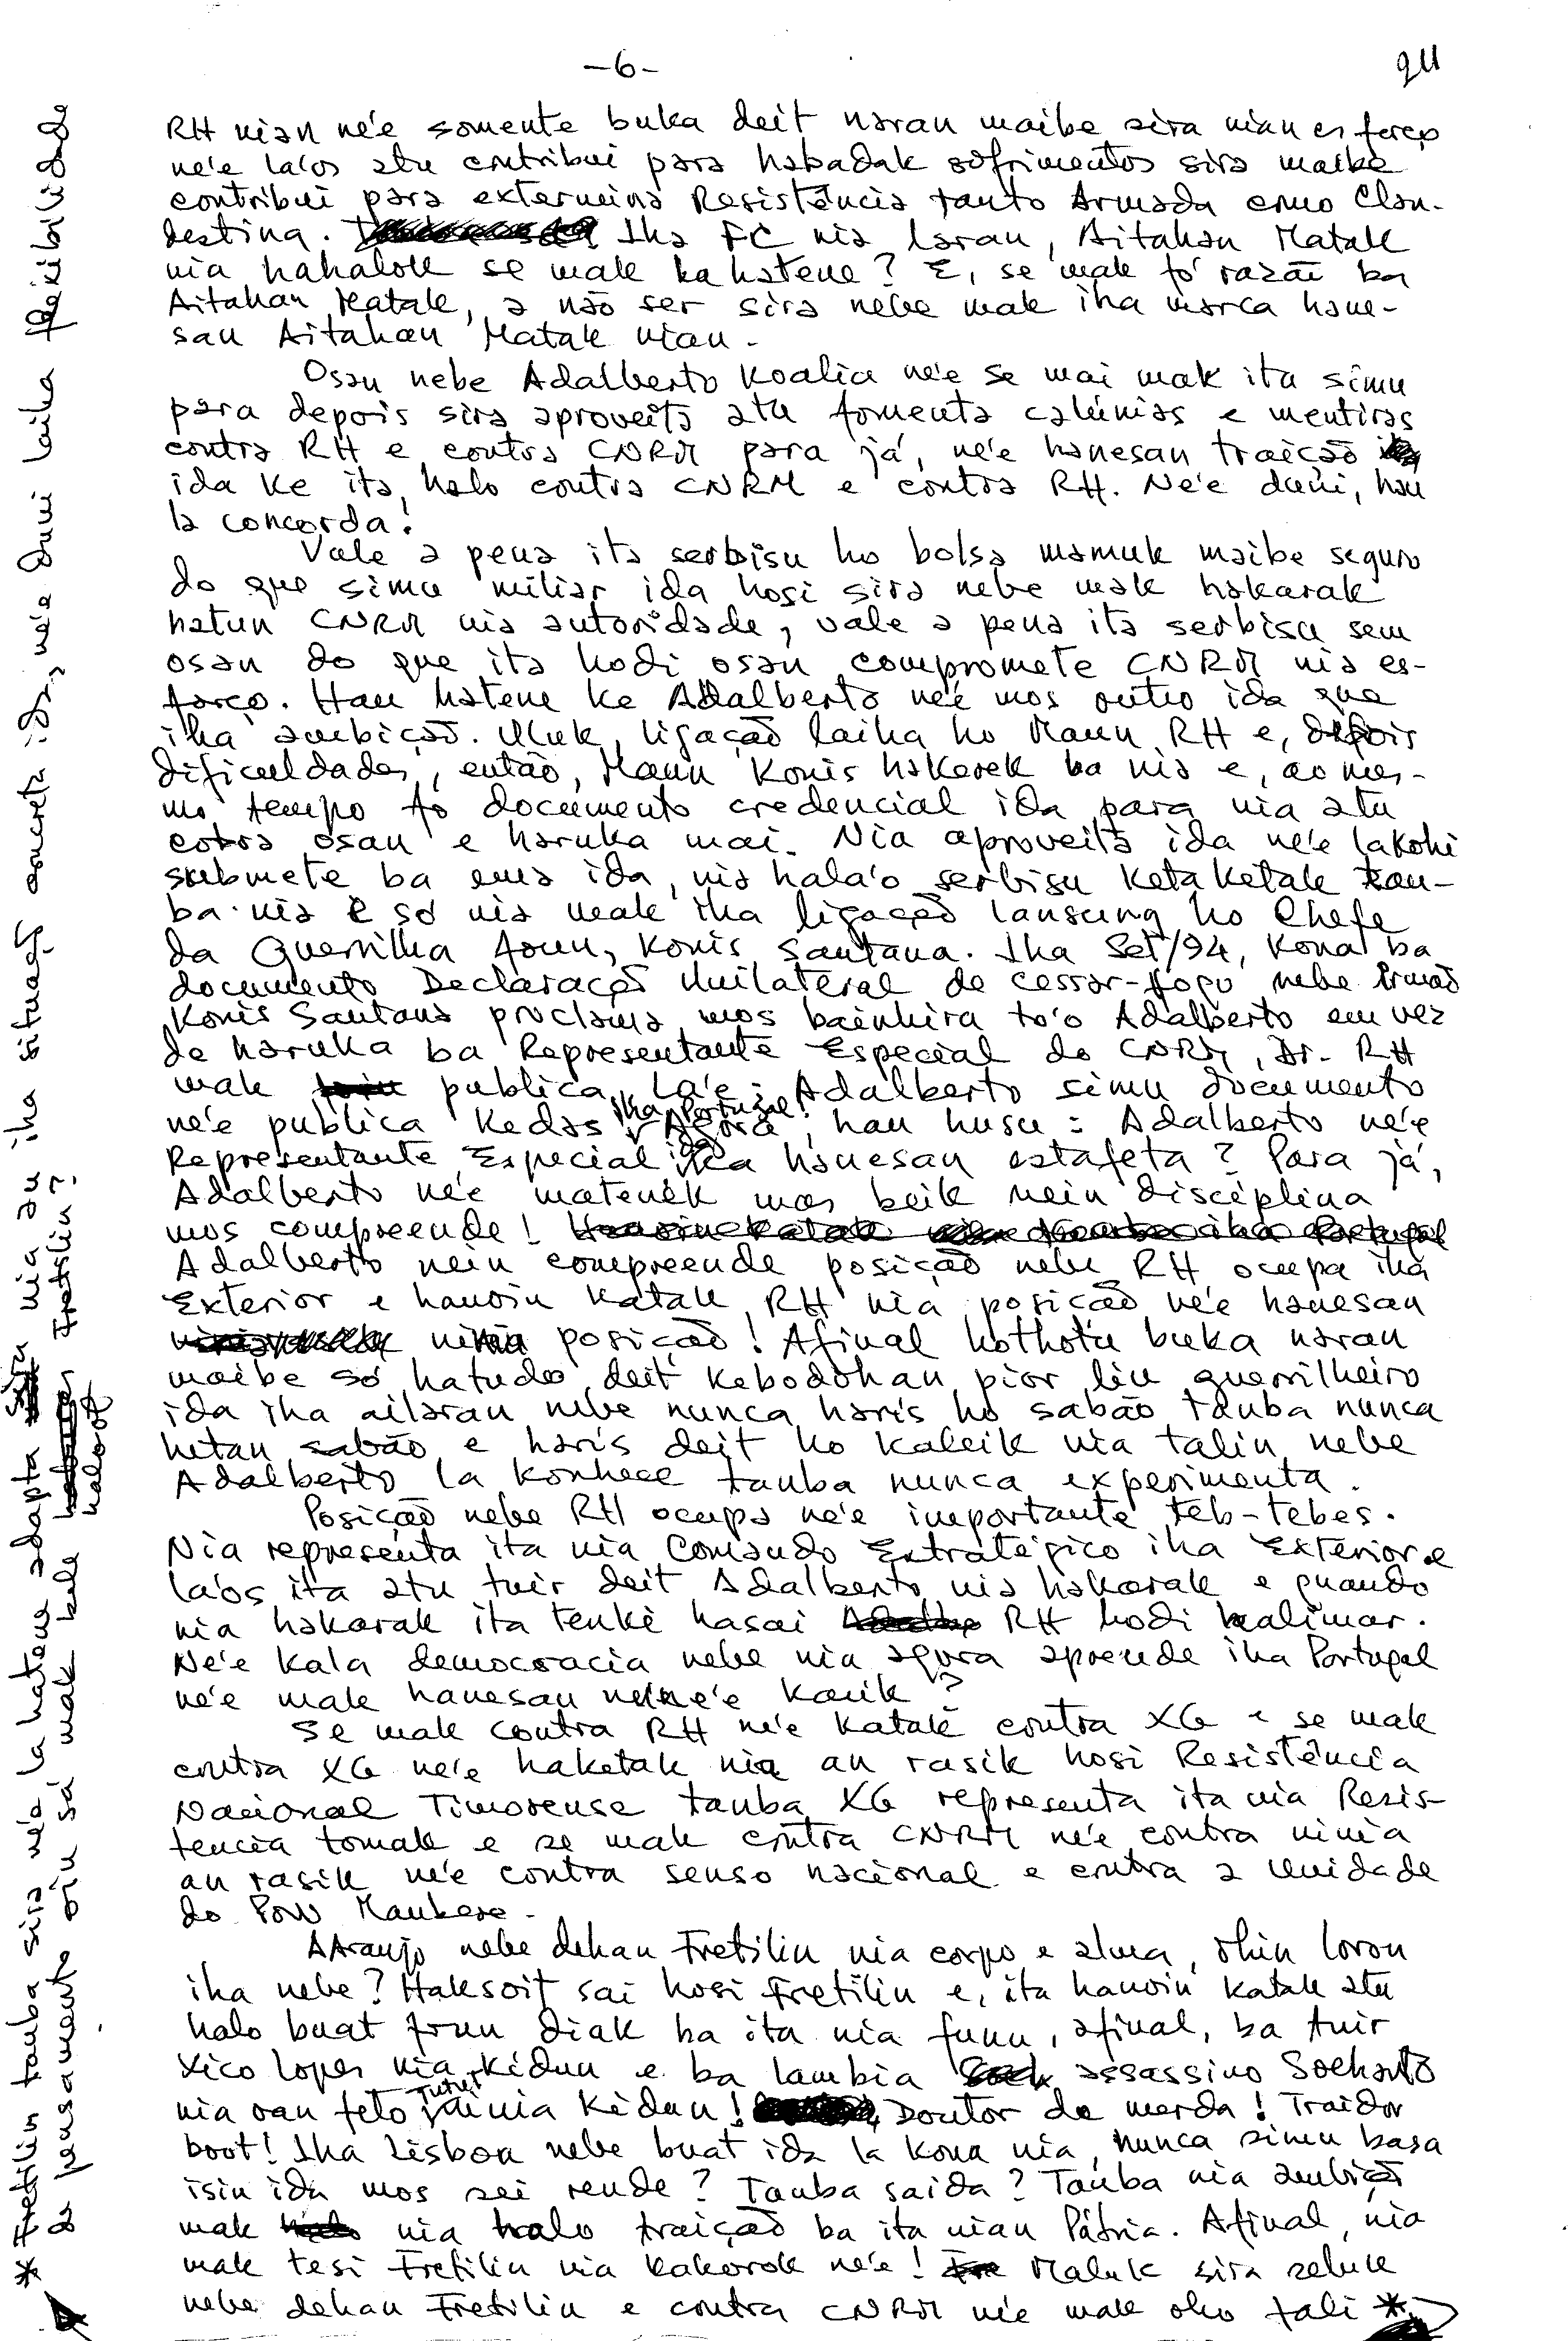 -6-
RH nian ne'e somente buka deit naran maibe sira nian esforço
ne'e la'os atu contribui para habadak sofrimentos sira maibe
contribui para extermina Resistência tanto Armada como Clan-
destina. Iha FC nia laran, Aitahan Matak
nia hahalok se mak la hatene? E, se mak fó razão ba
Aitahan Matak, a não ser sira nebe mak iha marca hane-
san Aitahan Matak nian.
Osan nebe Adalberto Koalia ne'e se mai mak ita simu
para depois sira aproveita atu fomenta calúnias e mentiras
contra RH e contra CNRM para já, ne'e hanesan traição
ida ke ita halo contra CNRM e contra RH. Ne'e duni, hau
la concorda!
Vale a pena ita serbisu ho bolsa mamuk maibe seguro
do que simu miliar ida hosi sira nebe mak hakarak
hatun CNRM nia autoridade, vale a pena ita serbisu sem
osan do que ita hodi osan compromete CNRM nia es-
forço. Hau hatene ke Adalberto ne'e mos outro ida que
iha ambição. Uluk, ligação laiha ho Maun RH e, depois
dificuldades, então, Maun Konis hakerek ba nia e, ao mes-
mo tempo fó documento credencial ida para nia atu
cobra osan e haruka mai. Nia aproveita ida ne'e lakohi
submete ba ema ida, nia hala'o serbisu ketaketak tan-
ba nia e só nia mak iha ligação lansung ho Chefe
da Guerrilha foun, Konis Santana. Iha Set/94, Kona ba
documento Declaração Unilateral de cessar-fogo nebe Irmão
Konis Santana proclama mos bainhira to'o Adalberto em vez
de haruka ba Representante Especial do CNRM, Dr. RH
mak publica, La'e; Adalberto simu documento
ne'e publica Kedas iha Portugal! Agora, hau husu: Adalberto ne'e
Representante Especial ida hanesan estafeta? Para já,
Adalberto ne'e matenek mas beik nein disciplina
mos compreende!
Adalberto nein compreende posição nebe RH ocupa iha
Exterior e hanoin katak RH nia posição ne'e hanesan
ninia posição! Afinal hothotu buka naran
maibe só hatudo deit kebodohan pior liu guerrilheiro
ida iha ailaran nebe nunca haris ho sabão tanba nunca
hetan sabão e haris deit ho kaleik nia talin nebe
Adalberto la konhece tanba nunca experimenta.
Posição nebe RH ocupa ne'e importante teb-tebes.
Nia representa ita nia Comando Estratégico iha Exterior e
la'os ita atu tuir deit Adalberto nia hakarak e quando
nia hakarak ita tenke hasai RH hodi halimar.
Ne'e kala democracia nebe nia agora aprende iha Portugal
ne'e mak hanesan ne'e karik?
Se mak contra RH ne'e katak contra XG e se mak
contra XG ne'e haketak nia an rasik hosi Resistência
Nacional Timorense tanba XG representa ita nia Resis-
tencia tomak e se mak contra CNRM ne'e contra ninia
an rasik ne'e contra senso nacional e contra a Unidade
do Povo Maubere.
AAraujo nebe dehan Fretilin nia corpo e alma, ohin loron
iha nebe? Haksoit sai hosi Fretilin e, ita hanoin katak atu
halo buat foun diak ba ita nia funu, afinal, ba tuir
Xico Lopes nia kidun e ba lambia assassino Soeharto
nia oan feto Tutut ninia kidun! Doutor de merda! Traidor
boot! Iha Lisboa nebe buat ida la kona nia, nunca simu basa
isin ida mos sei rende? Tanba saida? Tanba nia ambição
mak nia halo traição ba ita nian Pátria. Afinal, nia
mak tesi Fretilin nia kakorok ne'e! Maluk sira seluk
nebe dehan Fretilin e contra CNRM ne'e mak oho tali *
* Fretilin tanba sira ne'e la hatene adapta sira nia an iha situação concreta ida, ne'e duni laiha flexibilidade
de pensamento oin sá mak bele halo Fretilin?